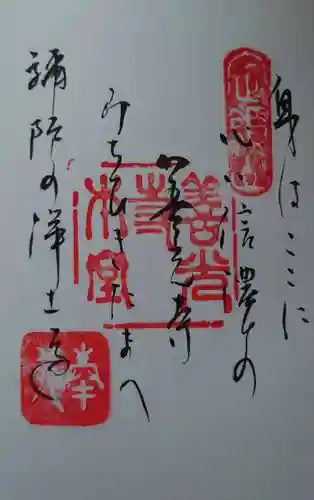 身はここに
心は信濃の
善光寺
みちびきたまへ
彌陀の浄土へ
善光
寺
本堂